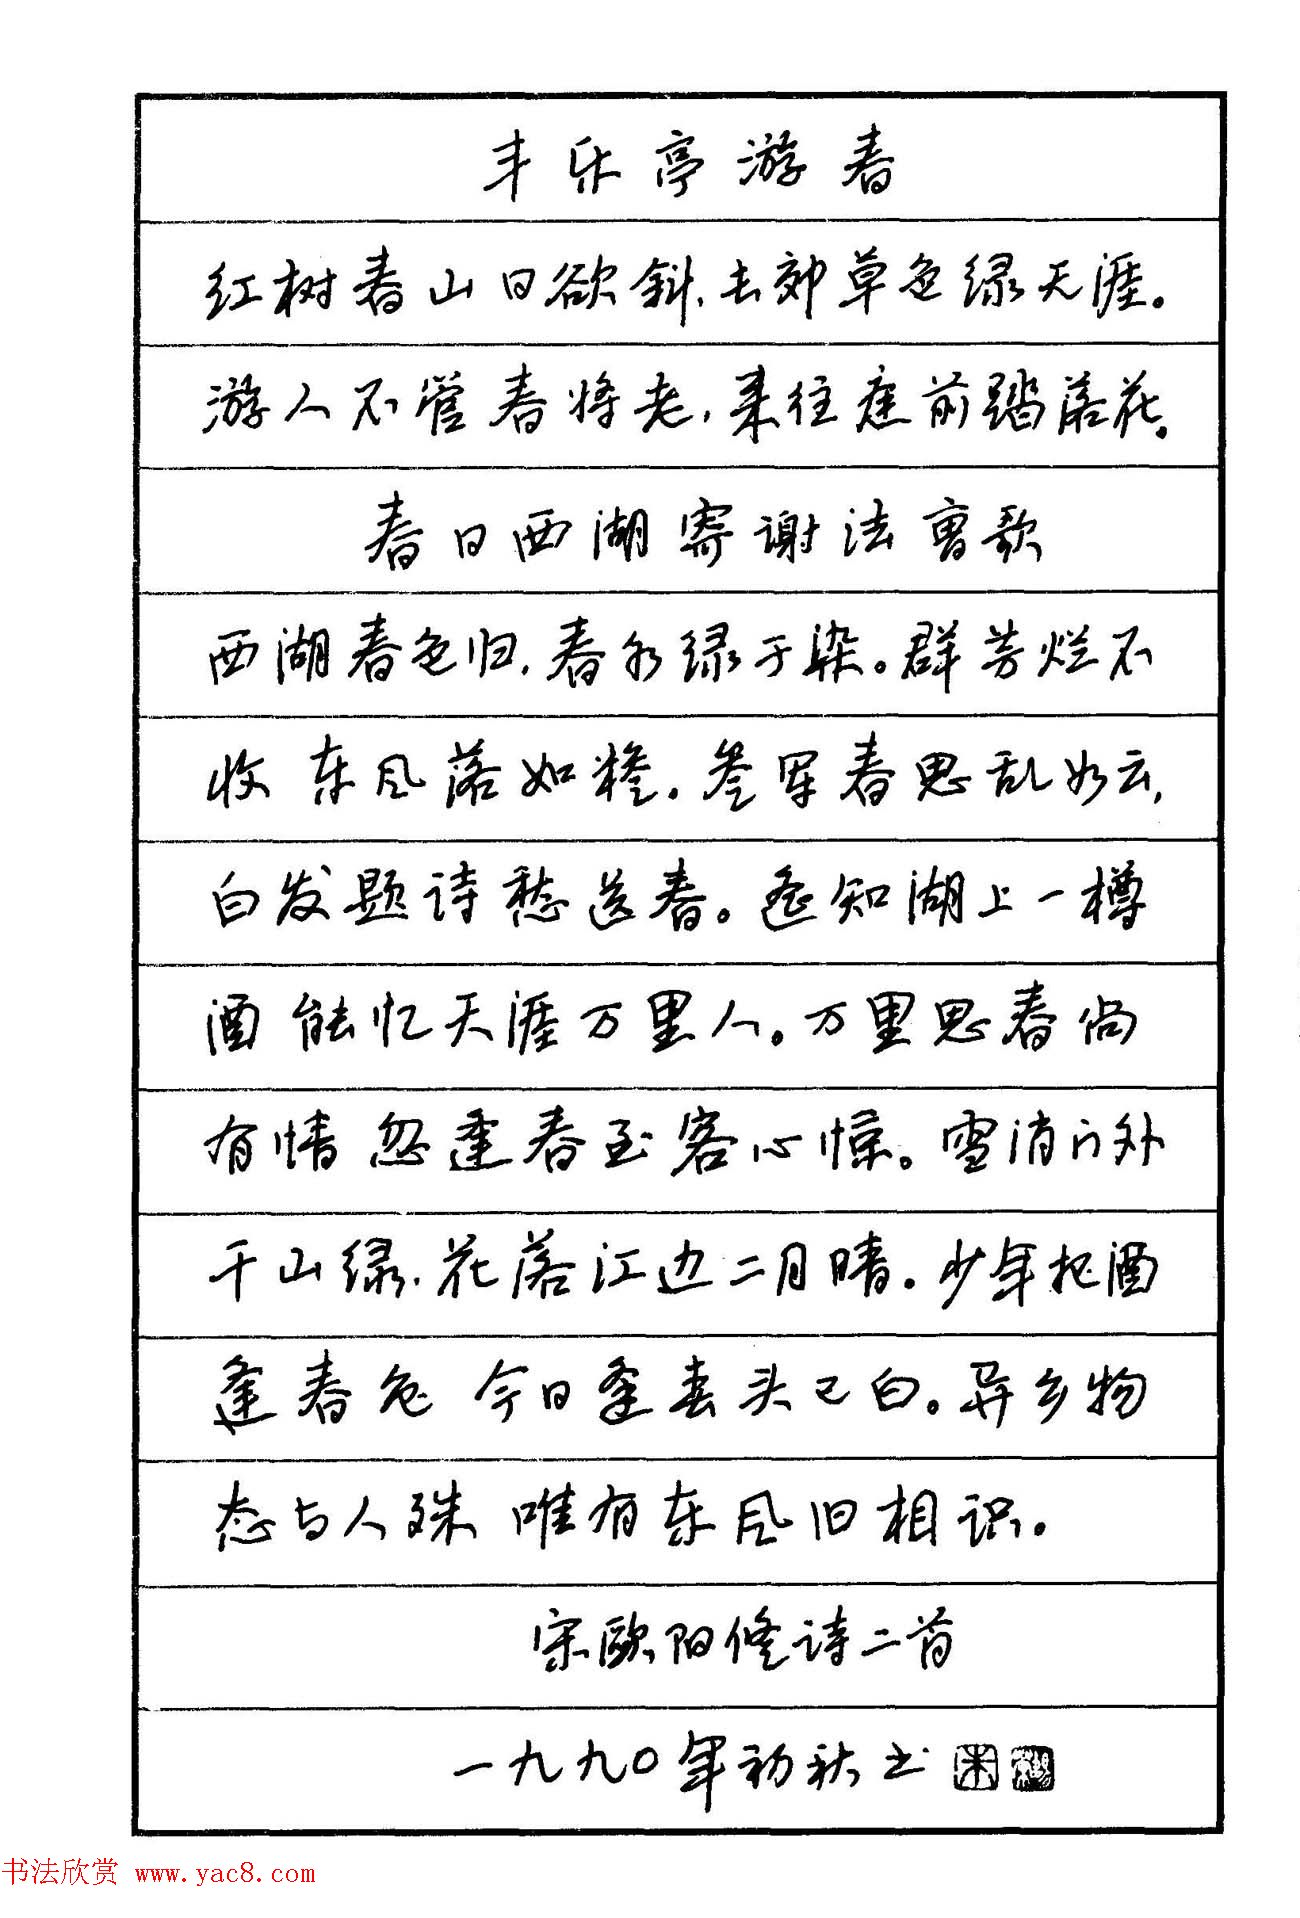 丰乐亭游春
红树春山日欲斜，去郊草色绿天涯。
游人不管春将老，来往座前踏落花。
春日西湖寄谢法曹歌
西湖春色归，春水绿于染。群芳烂不
收 东风落如糁。参军春思乱如云，
白发题诗愁送春。遥知湖上一樽
酒 能忆天涯万里人。万里思春尚
有情 忽逢春至客心惊。雪消门外
千山绿，花落江边二月晴。少年把酒
逢春色 今日逢春头已白。异乡物
态与人殊 唯有东风旧相识。
宋欧阳修诗二首
一九九〇年初秋书
书法欣赏 www.yac8.com